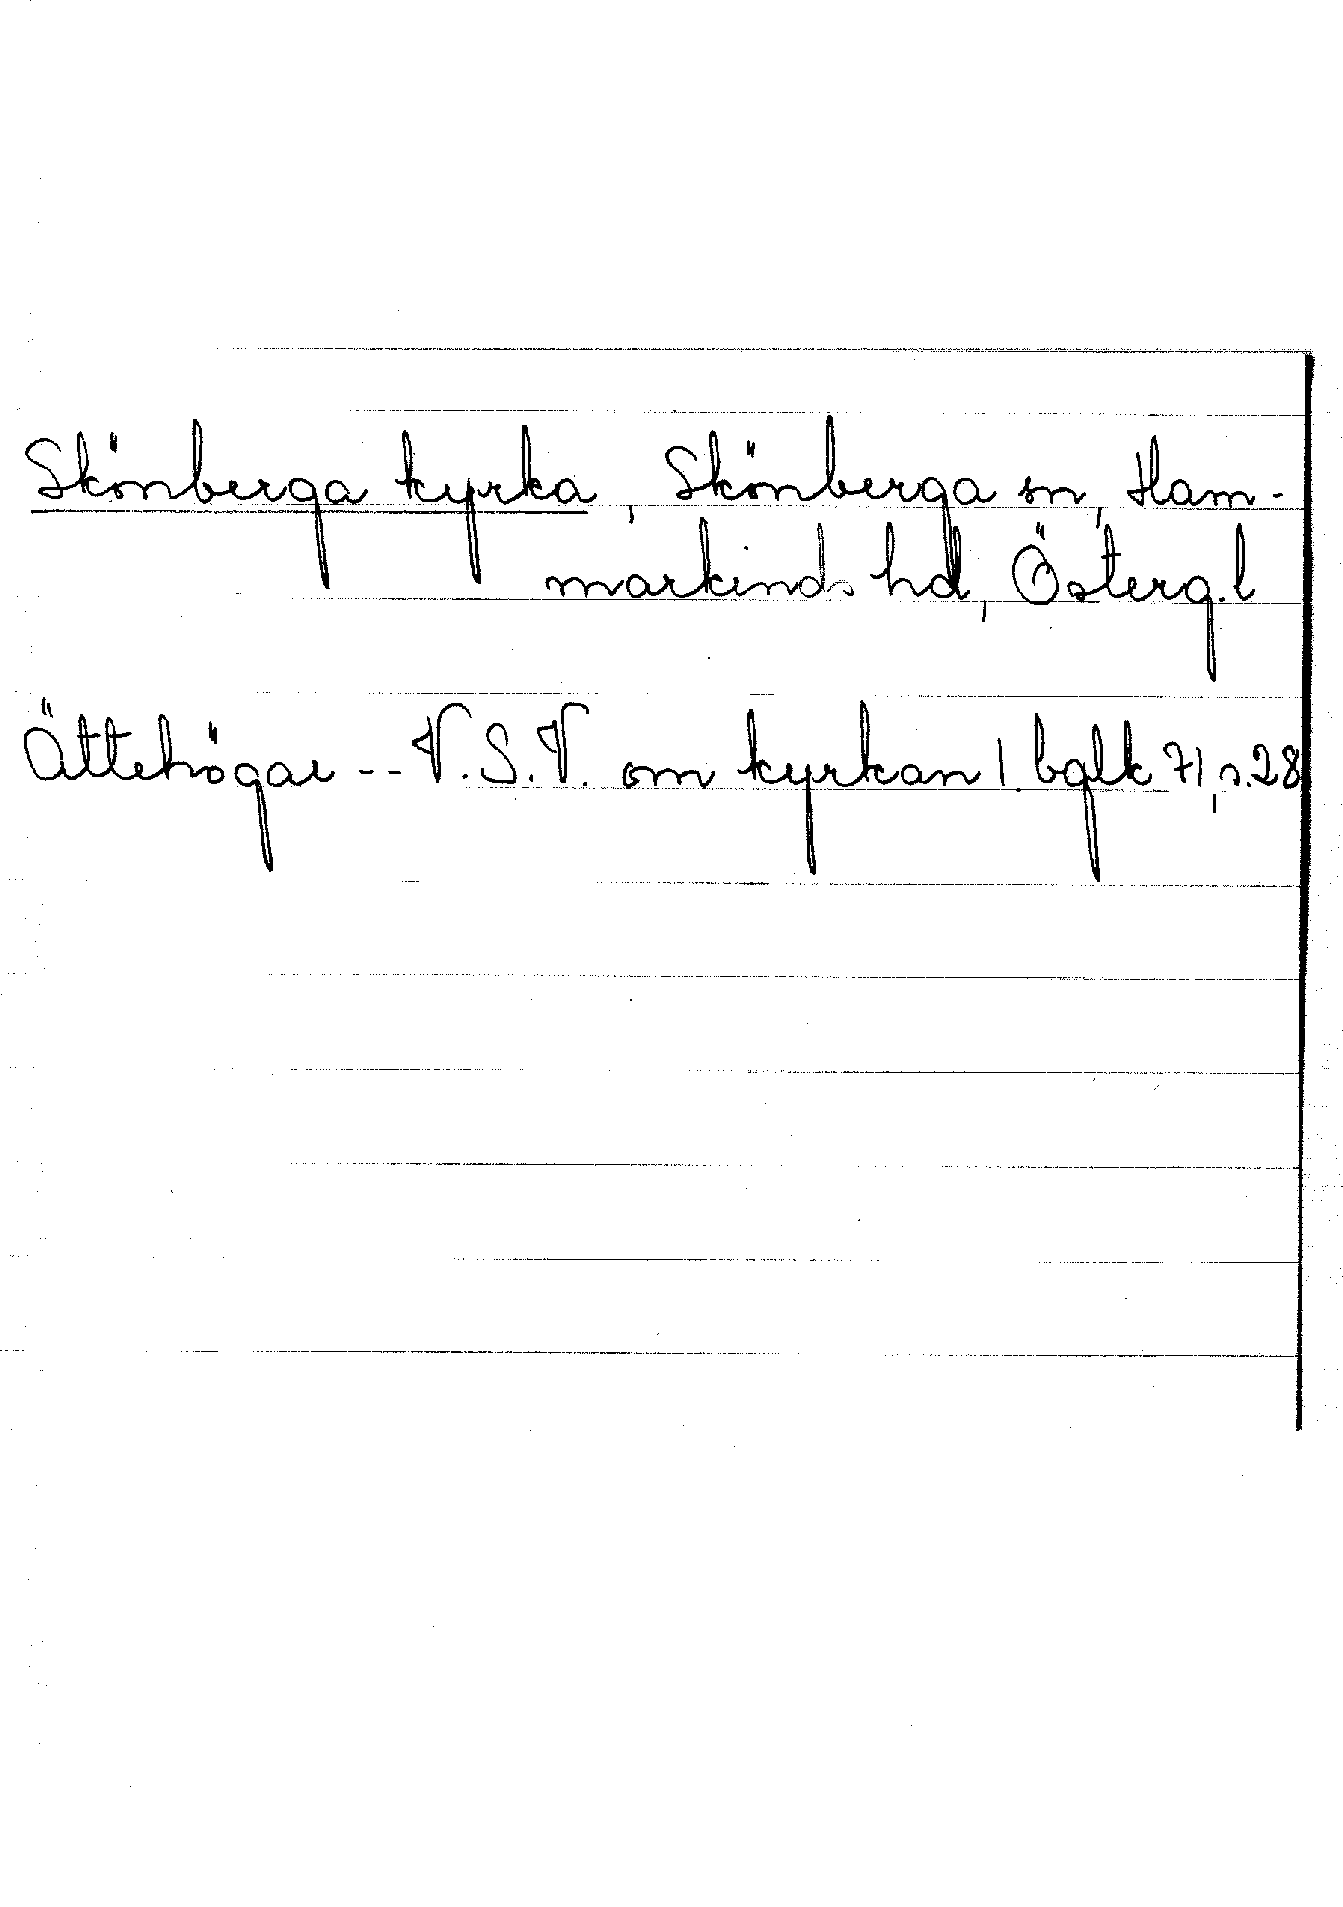 Skönberga kyrka, Skönberga sn, Ham-
markinds hd, Österg.l
Ättehögar -- V.S.V. om kyrkan 1. bglk 71, s.28